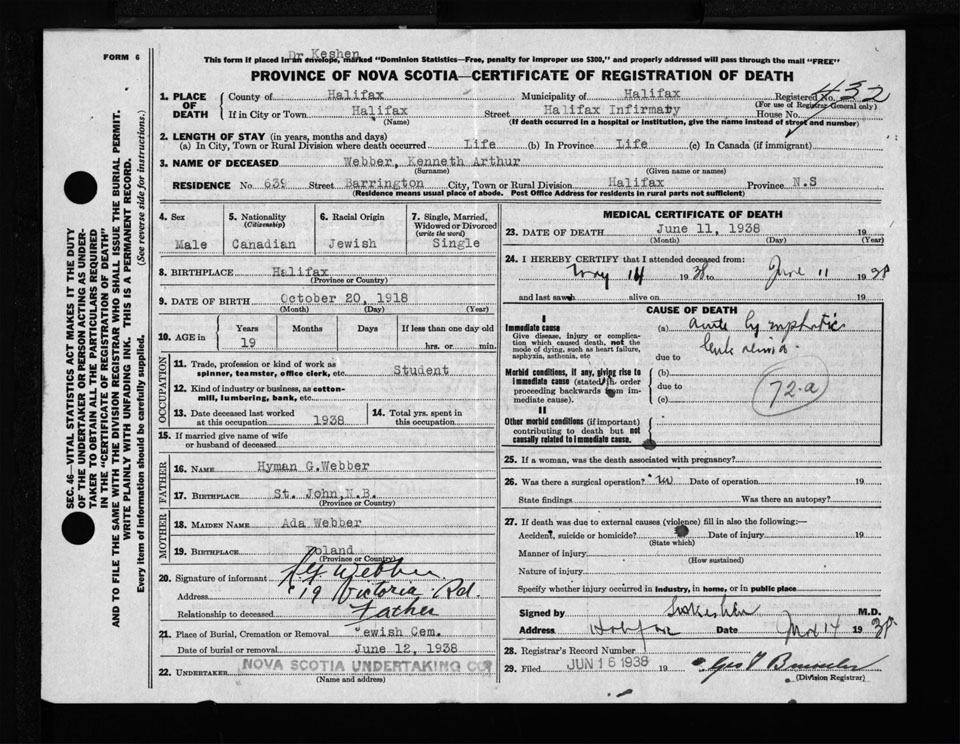 FORM 6
Dr Keshen
This form if placed in an envelope, marked "Dominion Statistics—Free, penalty for improper use $300," and properly addressed will pass through the mail "FREE"
PROVINCE OF NOVA SCOTIA—CERTIFICATE OF REGISTRATION OF DEATH
SEC. 46—VITAL STATISTICS ACT MAKES IT THE DUTY
OF THE UNDERTAKER OR PERSON ACTING AS UNDER-
TAKER TO OBTAIN ALL THE PARTICULARS REQUIRED
IN THE "CERTIFICATE OF REGISTRATION OF DEATH"
AND TO FILE THE SAME WITH THE DIVISION REGISTRAR WHO SHALL ISSUE THE BURIAL PERMIT.
WRITE PLAINLY WITH UNFADING INK. THIS IS A PERMANENT RECORD.
Every item of information should be carefully supplied. (See reverse side for instructions.)
1. PLACE OF DEATH County of Halifax Municipality of Halifax Registered No. 432
(For use of Registrar-General only)
If in City or Town Halifax Street Halifax Infirmary House No.
(Name) (If death occurred in a hospital or institution, give the name instead of street and number)
2. LENGTH OF STAY (in years, months and days)
(a) In City, Town or Rural Division where death occurred Life (b) In Province Life (c) In Canada (if immigrant)
3. NAME OF DECEASED Webber, Kenneth Arthur
(Surname) (Given name or names)
RESIDENCE No 639 Street Barrington City, Town or Rural Division Halifax Province N.S
(Residence means usual place of abode. Post Office Address for residents in rural parts not sufficient)
4. Sex 5. Nationality 6. Racial Origin 7. Single, Married, Widowed or Divorced
(Citizenship) (write the word)
Male Canadian Jewish Single
8. BIRTHPLACE Halifax
(Province or Country)
9. DATE OF BIRTH October 20, 1918
(Month) (Day) (Year)
10. AGE in Years Months Days If less than one day old
19 hrs. or min.
OCCUPATION
11. Trade, profession or kind of work as
spinner, teamster, office clerk, etc. Student
12. Kind of industry or business, as cotton-
mill, lumbering, bank, etc.
13. Date deceased last worked at this occupation 1938 14. Total yrs. spent in this occupation
15. If married give name of wife
or husband of deceased
FATHER
16. NAME Hyman G.Webber
17. BIRTHPLACE St. John,N.B.
(Province or Country)
MOTHER
18. MAIDEN NAME Ada Webber
19. BIRTHPLACE Poland
(Province or Country)
20. Signature of informant Hy Webber
Address 19 Victoria Rd.
Relationship to deceased Father
21. Place of Burial, Cremation or Removal Jewish Cem.
Date of burial or removal June 12, 1938
22. UNDERTAKER NOVA SCOTIA UNDERTAKING CO
(Name and address)
MEDICAL CERTIFICATE OF DEATH
23. DATE OF DEATH June 11, 1938 19
(Month) (Day) (Year)
24. I HEREBY CERTIFY that I attended deceased from:
May 14 1938 to June 11 1938
and last saw alive on 19
CAUSE OF DEATH
I
Immediate cause (a) Acute lymphatic
Give disease, injury or complica-
tion which caused death, not the
mode of dying, such as heart failure,
asphyxia, asthenia, etc due to leukaemia
Morbid conditions, if any, giving rise to (b)
immediate cause (stated in order due to
proceeding backwards from im- (c)
mediate cause). 72-a
II
Other morbid conditions (if important)
contributing to death but not
causally related to immediate cause.
25. If a woman, was the death associated with pregnancy?
26. Was there a surgical operation? no Date of operation 19
State findings Was there an autopsy?
27. If death was due to external causes (violence) fill in also the following:—
Accident, suicide or homicide? Date of injury 19
(State which)
Manner of injury
(How sustained)
Nature of injury
Specify whether injury occurred in industry, in home, or in public place
Signed by Keshen M.D.
Address Halifax Date 14 1938
28. Registrar's Record Number
29. Filed JUN 16 1938 19
(Division Registrar)